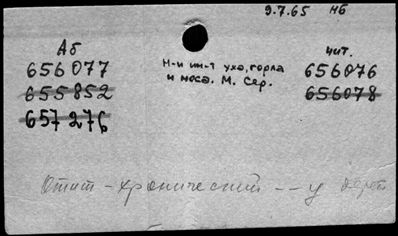 9.7.65 нб
Аб
656077
655852
657276
Н-и ин-т уха, горла
и носа. М. Сер.
чит.
656076
656078
Отит - хронический -- у детей